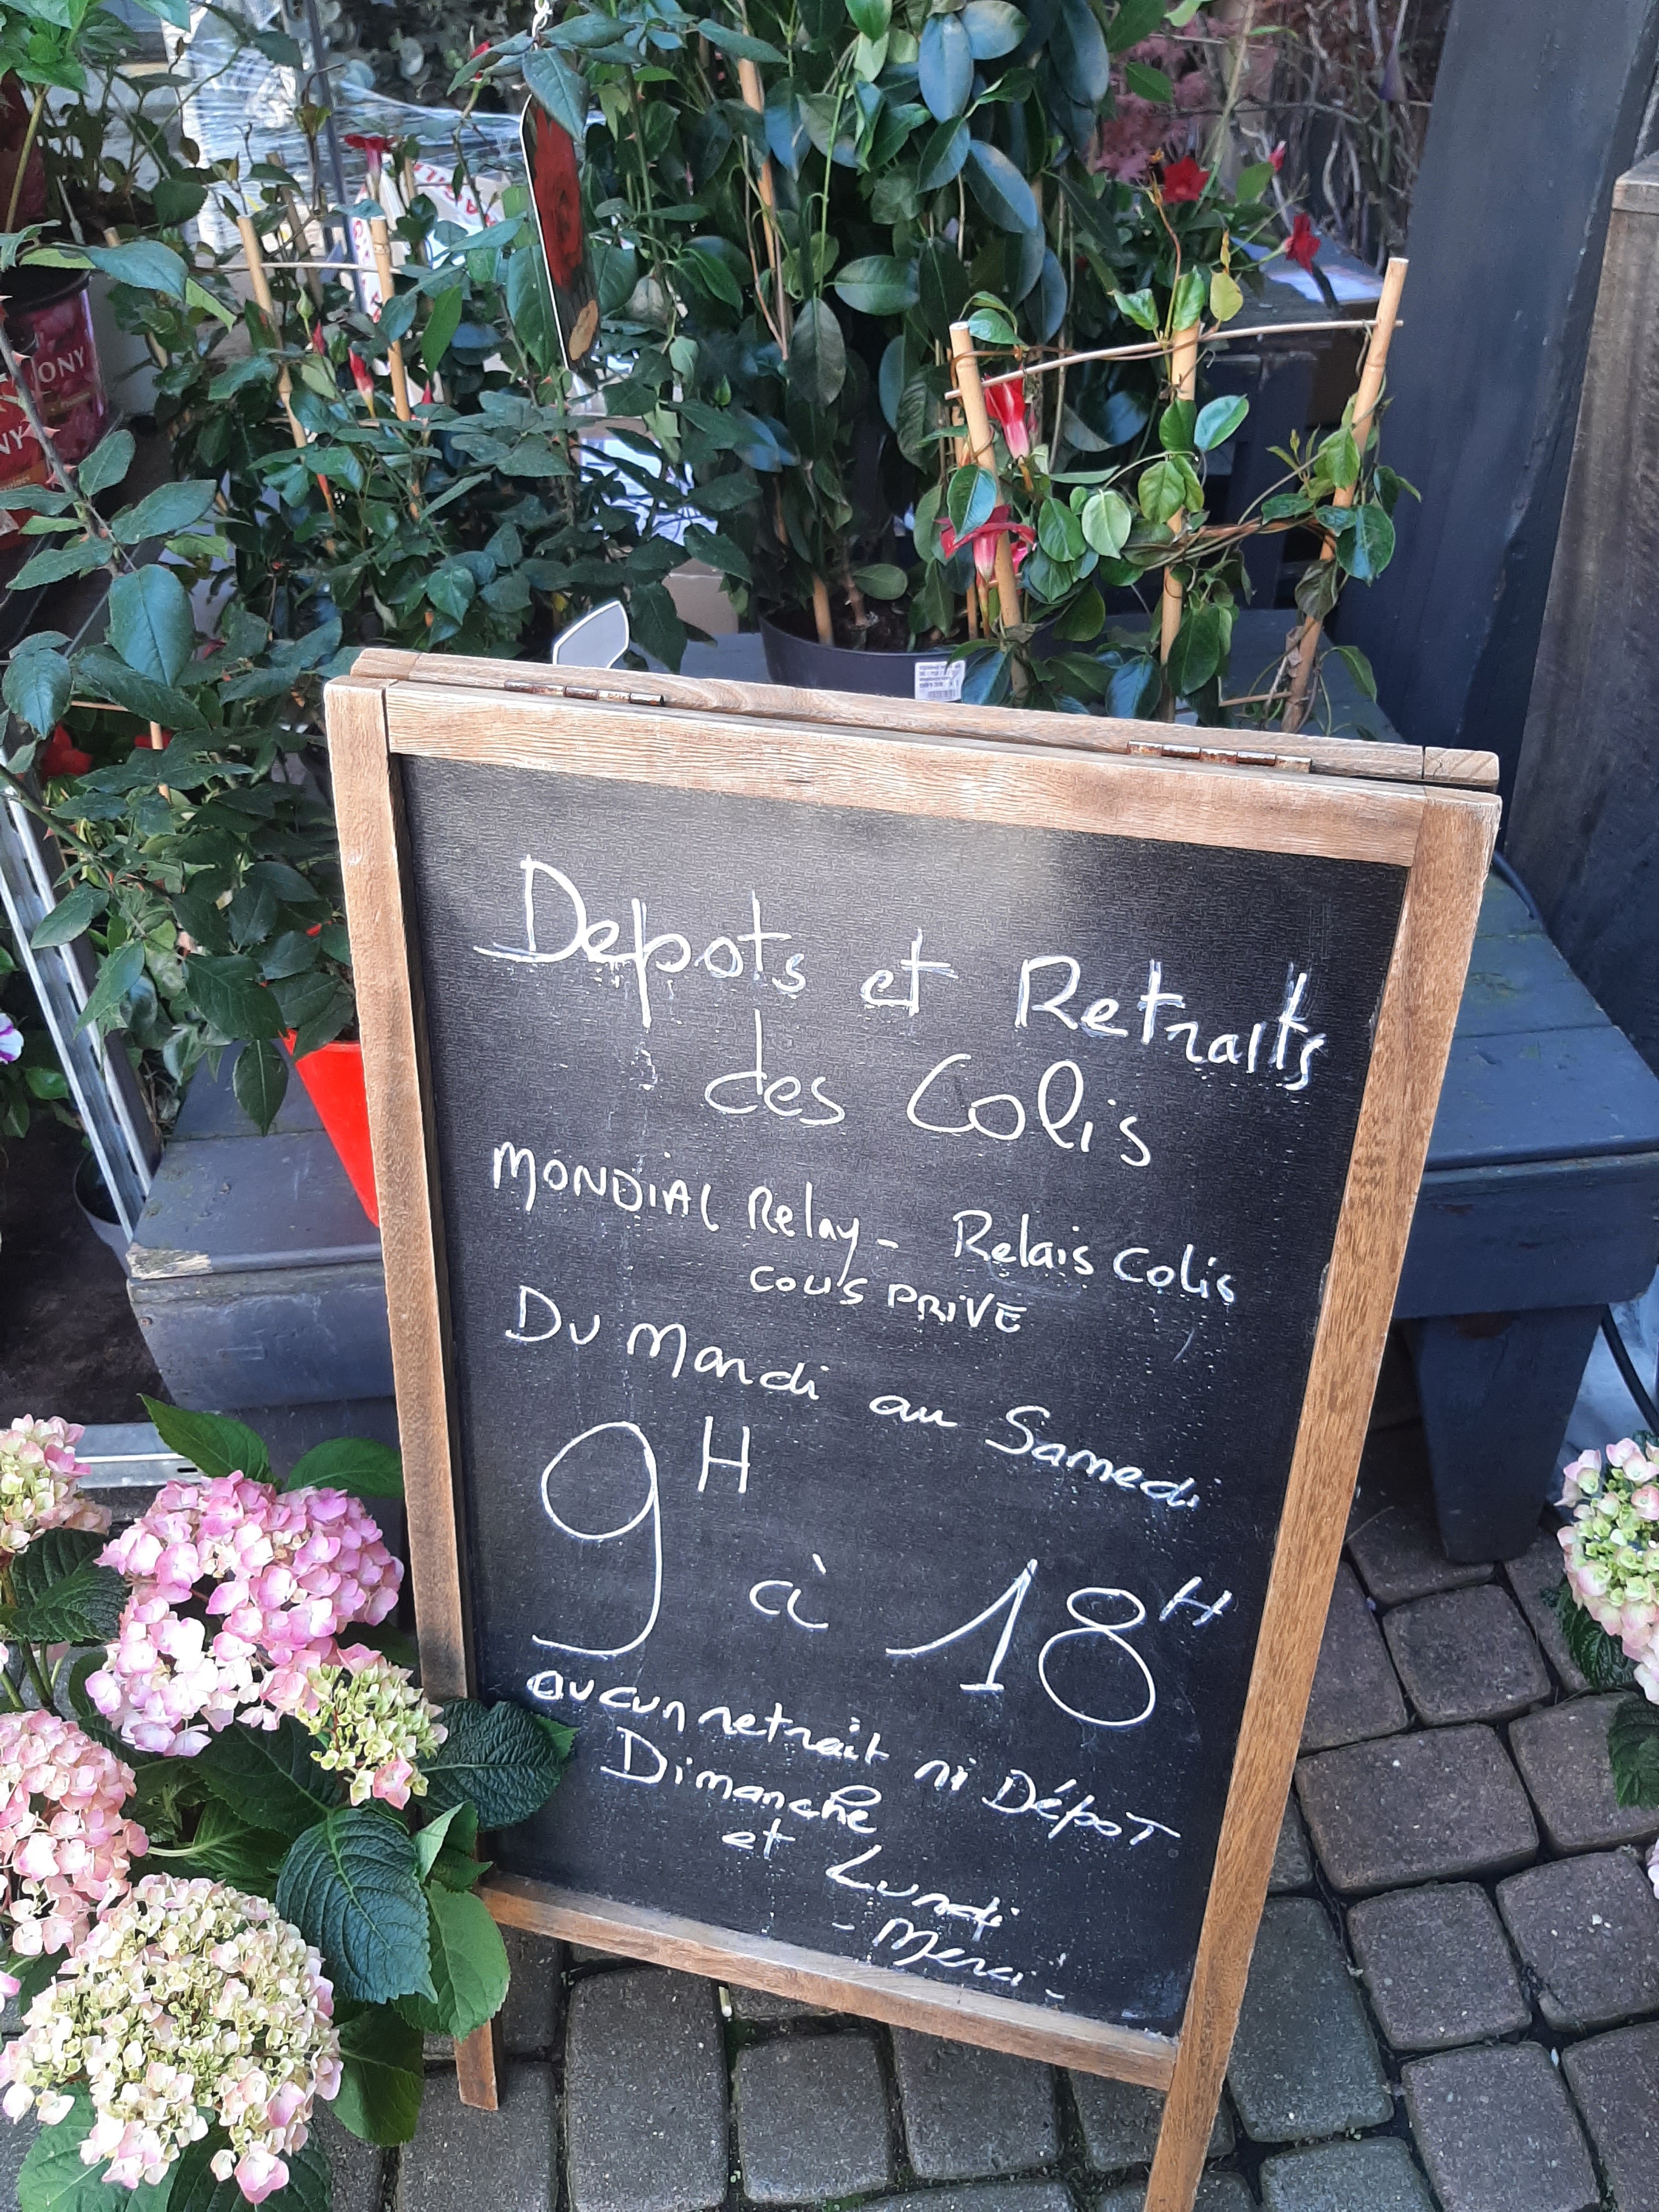 Depots et Retraits
des Colis
MONDIAL Relay - Relais Colis
COLIS PRIVE
Du Mardi au Samedi
9H à 18H
aucun retrait ni Dépot
Dimanche
et Lundi
- Merci -